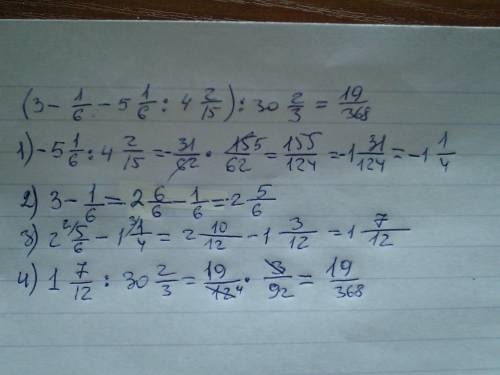 (3 - 1/6 - 5 1/6 : 4 2/15) : 30 2/3 = 19/368
1) - 5 1/6 : 4 2/15 = - 31/62 · 155/62 = 155/124 = - 1 31/124 = - 1 1/4
2) 3 - 1/6 = 2 6/6 - 1/6 = 2 5/6
3) 2 5/6 - 1 1/4 = 2 10/12 - 1 3/12 = 1 7/12
4) 1 7/12 : 30 2/3 = 19/12 4 · 3/92 = 19/368